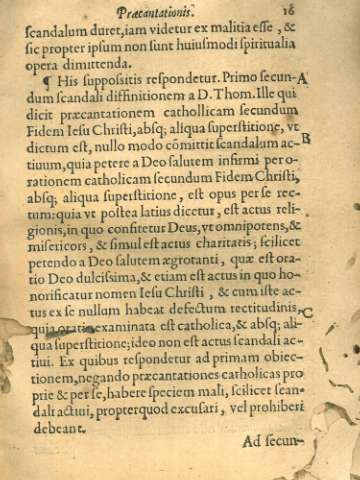 Præcantationis. 16
scandalum duret, iam videtur ex malitia esse, &
sic propter ipsum non sunt huiusmodi spiritualia
opera dimittenda.
¶ His suppositis respondetur. Primo secun- A
dum scandali diffinitionem a D. Thom. Ille qui
dicit præcantationem cathollicam secundum
Fidem Iesu Christi, absq; aliqua superstitione, vt
dictum est, nullo modo cõmittit scandalum ac- B
tiuum, quia petere a Deo salutem infirmi per o-
rationem catholicam secundum Fidem Christi,
absq; aliqua superstitione, est opus per se rec-
tum: quia vt postea latius dicetur, est actus reli-
gionis, in quo confitetur Deus, vt omnipotens, &
misericors, & simul est actus charitatis; scilicet
petendo a Deo salutem ægrotanti, quæ est ora-
tio Deo dulcissima, & etiam est actus in quo ho-
norificatur nomen Iesu Christi, & cum iste ac-
tus ex se nullum habeat defectum rectitudinis, C
quia oratio examinata est catholica, & absq; ali-
qua superstitione; ideo non est actus scandali ac-
tiui. Ex quibus respondetur ad primam obiec-
tionem, negando præcantationes catholicas pro
prie & per se, habere speciem mali, scilicet scan-
dali actiui, propterquod excusari, vel prohiberi
debeant.
Ad secun-